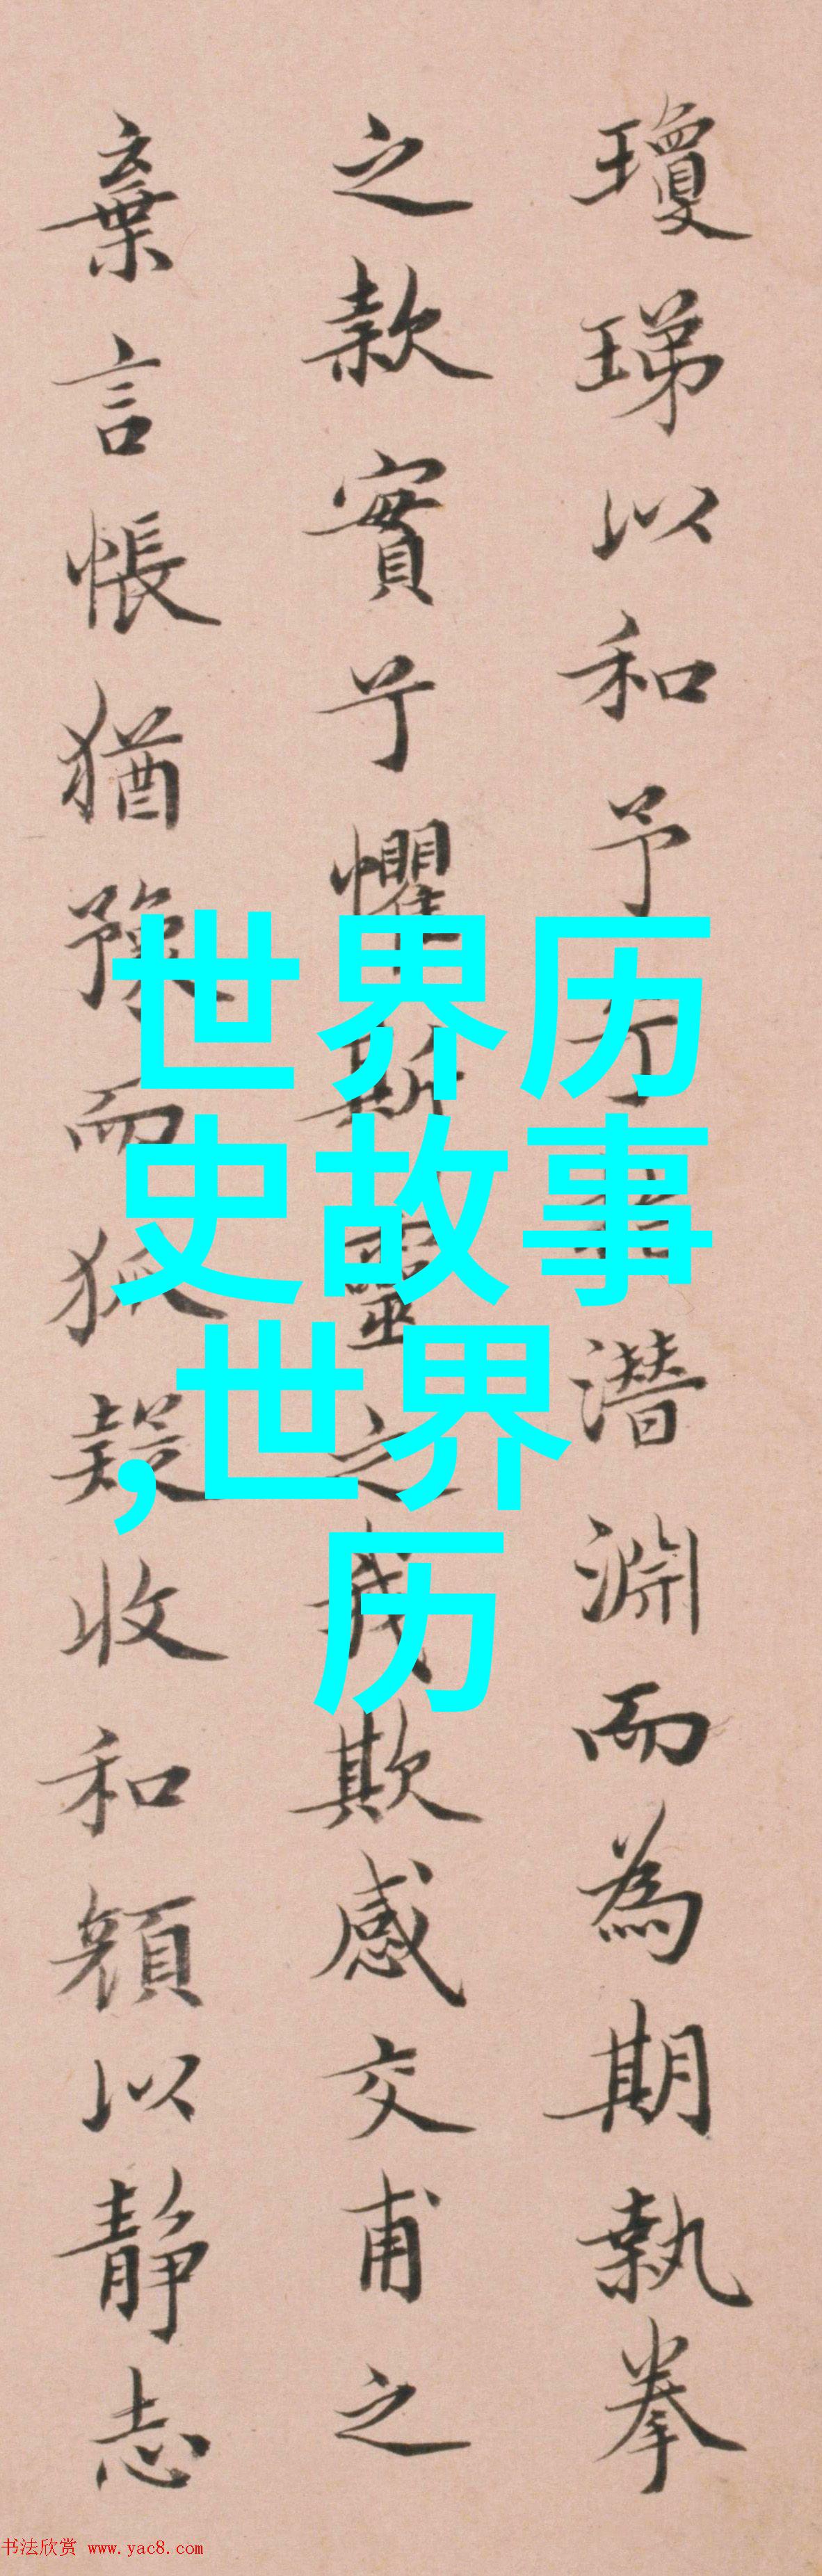 瓊珶以和予兮潛淵而為期執拳
之款實兮懼斯靈之我欺感交甫之
棄言悵猶豫而狐疑收和顏以靜志
世界历
史故事
,世界
历
书法欣赏 www.yac8.com